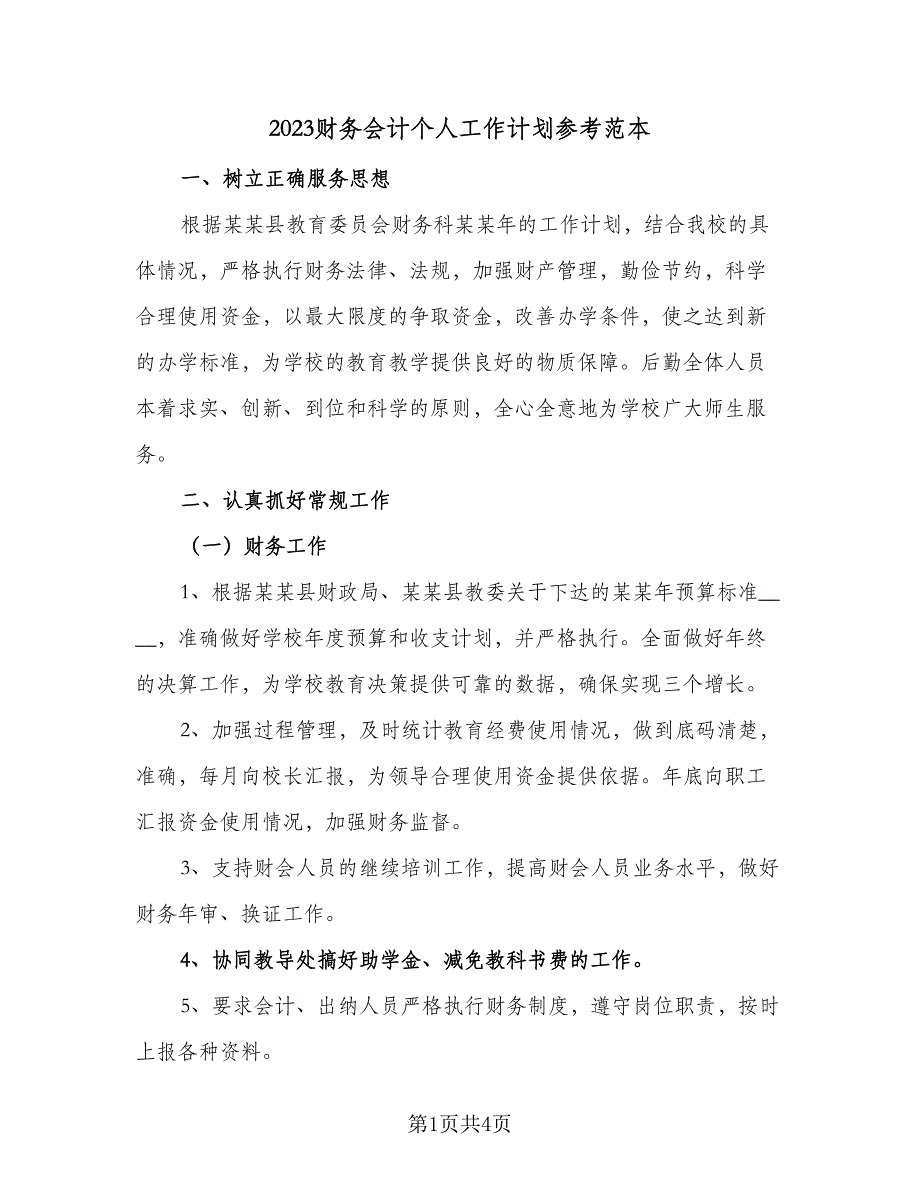 2023财务会计个人工作计划参考范本
一、树立正确服务思想
根据某某县教育委员会财务科某某年的工作计划，结合我校的具
体情况，严格执行财务法律、法规，加强财产管理，勤俭节约，科学
合理使用资金，以最大限度的争取资金，改善办学条件，使之达到新
的办学标准，为学校的教育教学提供良好的物质保障。后勤全体人员
本着求实、创新、到位和科学的原则，全心全意地为学校广大师生服
务。
二、认真抓好常规工作
（一）财务工作
1、根据某某县财政局、某某县教委关于下达的某某年预算标准__
__，准确做好学校年度预算和收支计划，并严格执行。全面做好年终
的决算工作，为学校教育决策提供可靠的数据，确保实现三个增长。
2、加强过程管理，及时统计教育经费使用情况，做到底码清楚，
准确，每月向校长汇报，为领导合理使用资金提供依据。年底向职工
汇报资金使用情况，加强财务监督。
3、支持财会人员的继续培训工作，提高财会人员业务水平，做好
财务年审、换证工作。
4、协同教导处搞好助学金、减免教科书费的工作。
5、要求会计、出纳人员严格执行财务制度，遵守岗位职责，按时
上报各种资料。
第1页共4页